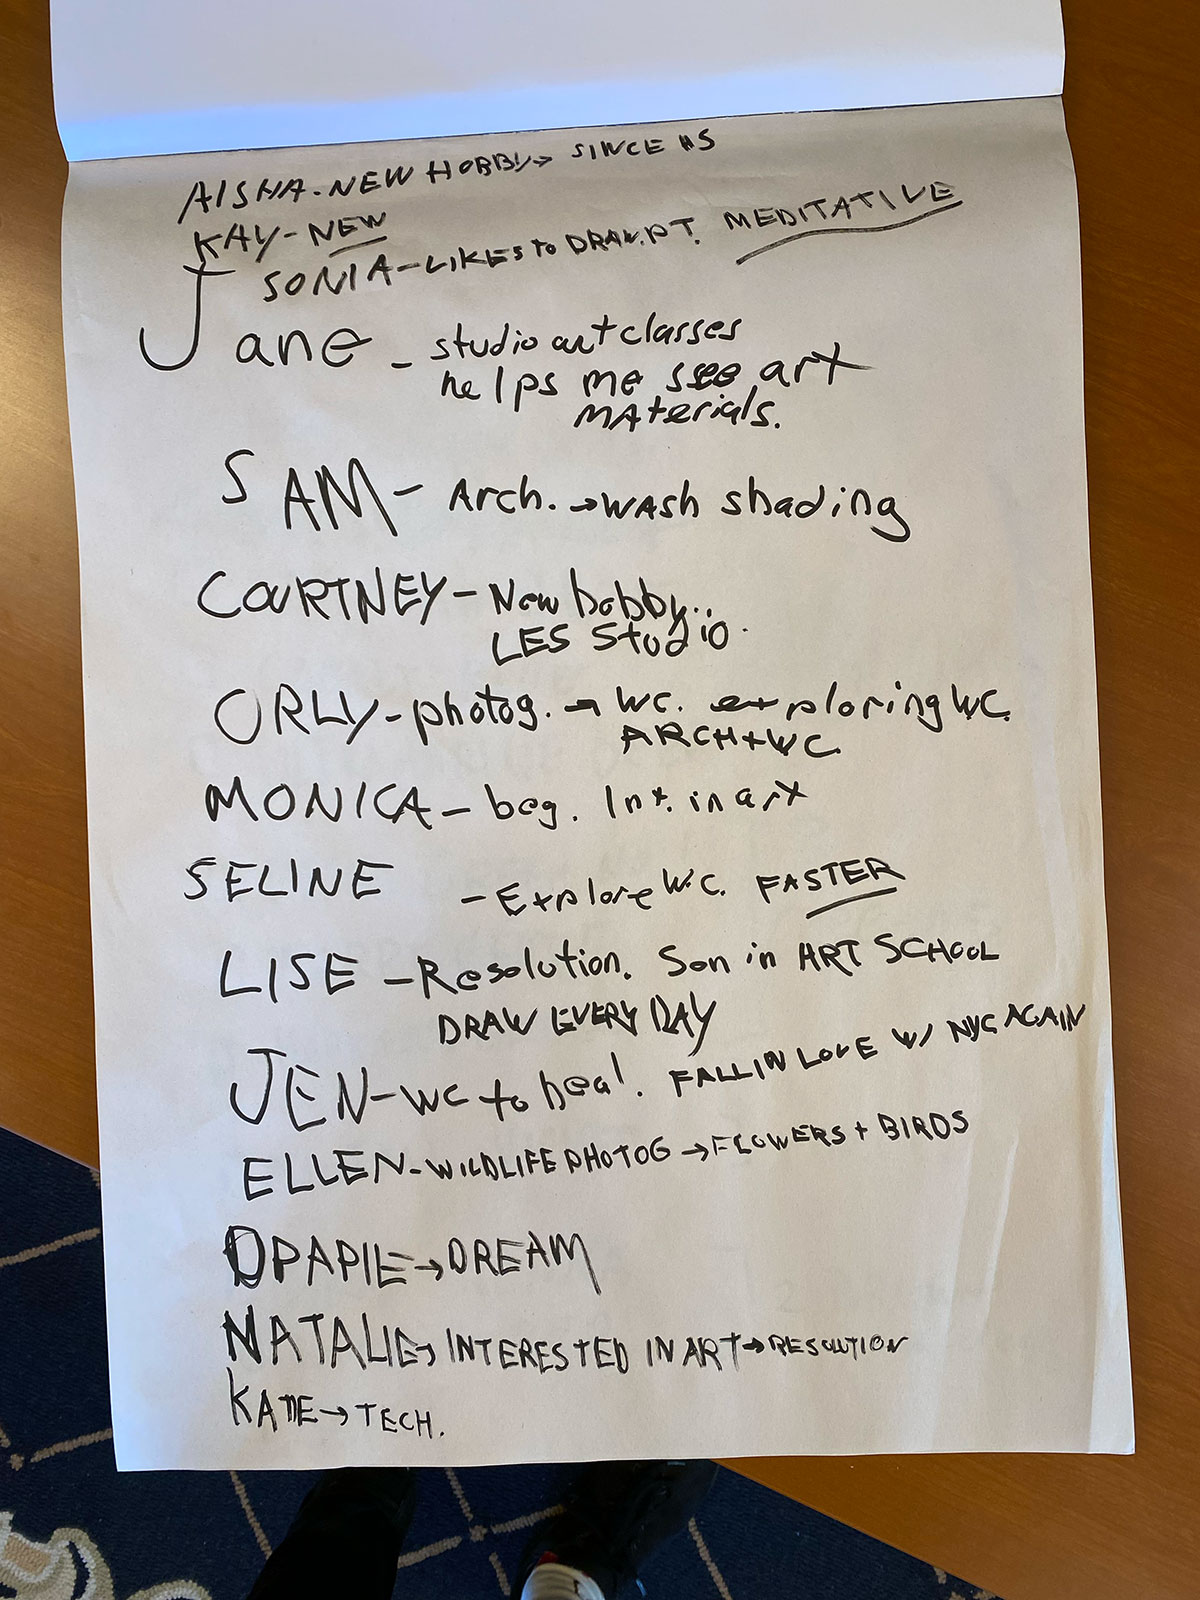 AISHA - NEW HOBBY → SINCE HS
KAY - NEW
SONIA - LIKES TO DRAW. PT. MEDITATIVE
Jane - studio art classes
helps me see art
MAterials.
SAM - Arch. → WASH shading
COURTNEY - New hobby.
LES Studio.
ORLY - photog. → WC. exploring WC.
ARCH + WC
MONICA - beg. Int. in art
SELINE - Explore W.C. FASTER
LISE - Resolution. Son in ART SCHOOL
DRAW EVERY DAY
JEN - WC to heal. FALL IN LOVE W/ NYC AGAIN
ELLEN - WILDLIFE PHOTOG → FLOWERS + BIRDS
→ DREAM
NATALIE → INTERESTED IN ART → RESOLUTION
KATIE → TECH.